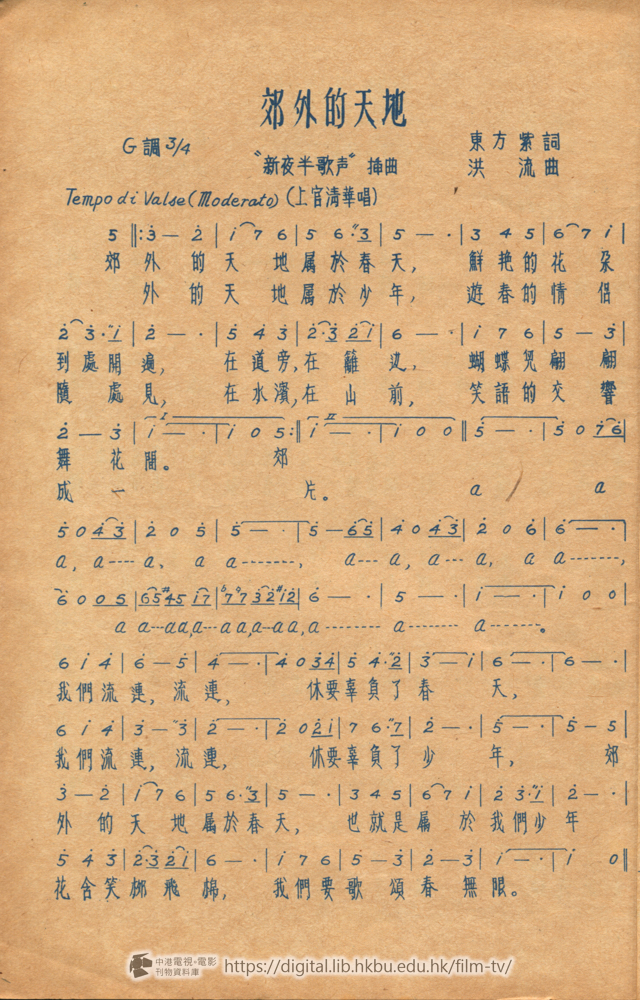 郊外的天地
G調 3/4
東方紫詞
"新夜半歌声" 揷曲
洪流曲
Tempo di Valse (Moderato) (上官淸華唱)
5 ‖: 3 — 2 | i 7 6 | 5 6·3 | 5 — · | 3 4 5 | 6 7 i |
郊 外 的 天 地 属 於 春 天， 鮮 艳 的 花 朶
外 的 天 地 属 於 少 年， 遊 春 的 情 侶
2 3·i | 2 — · | 5 4 3 | 2·3 2i | 6 — · | i 7 6 | 5 — 3 |
到 處 開 遍， 在 道 旁, 在 籬 边， 蝴 蝶 児 翩 翩
隨 處 見， 在 水 濱, 在 山 前， 笑 語 的 交 響
2 — 3 | i — · | i 0 5 :‖ i — · | i 0 0 ‖ 5 — · | 5 0 76 |
舞 花 間。 郊
成 一 片。 a a
5 0 43 | 2 0 5 | 5 — · | 5 — 65 | 4 0 43 | 2 0 6 | 6 — · |
a, a---- a, a a--------, a---- a, a--- a, a a--------,
6 0 0 5 | 65#45 i7 | 77 32 #i2 | 6 — · | 5 — · | i — · | i 0 0 |
a a---aa,a--- aa,a--aa, a -------- a ------- a -------。
6 i 4 | 6 — 5 | 4 — · | 4 0 34 | 5 4·2 | 3 — i | 6 — · | 6 — · |
我們 流 連, 流 連, 休要 辜 負 了 春 天，
6 i 4 | 3 — 3 | 2 — · | 2 0 2i | 7 6·7 | 2 — · | 5 — · | 5 — 5 |
我們 流 連, 流 連, 休要 辜 負 了 少 年， 郊
3 — 2 | i 7 6 | 5 6·3 | 5 — · | 3 4 5 | 6 7 i | 2 3·i | 2 — · |
外 的 天 地 属 於 春 天， 也 就 是 属 於 我 們 少 年
5 4 3 | 2·3 2i | 6 — · | i 7 6 | 5 — 3 | 2 — 3 | i — · | i 0 ‖
花 含 笑 梛 飛 棉， 我 們 要 歌 頌 春 無 限。
中港電視·電影
刊物資料庫
https://digital.lib.hkbu.edu.hk/film-tv/